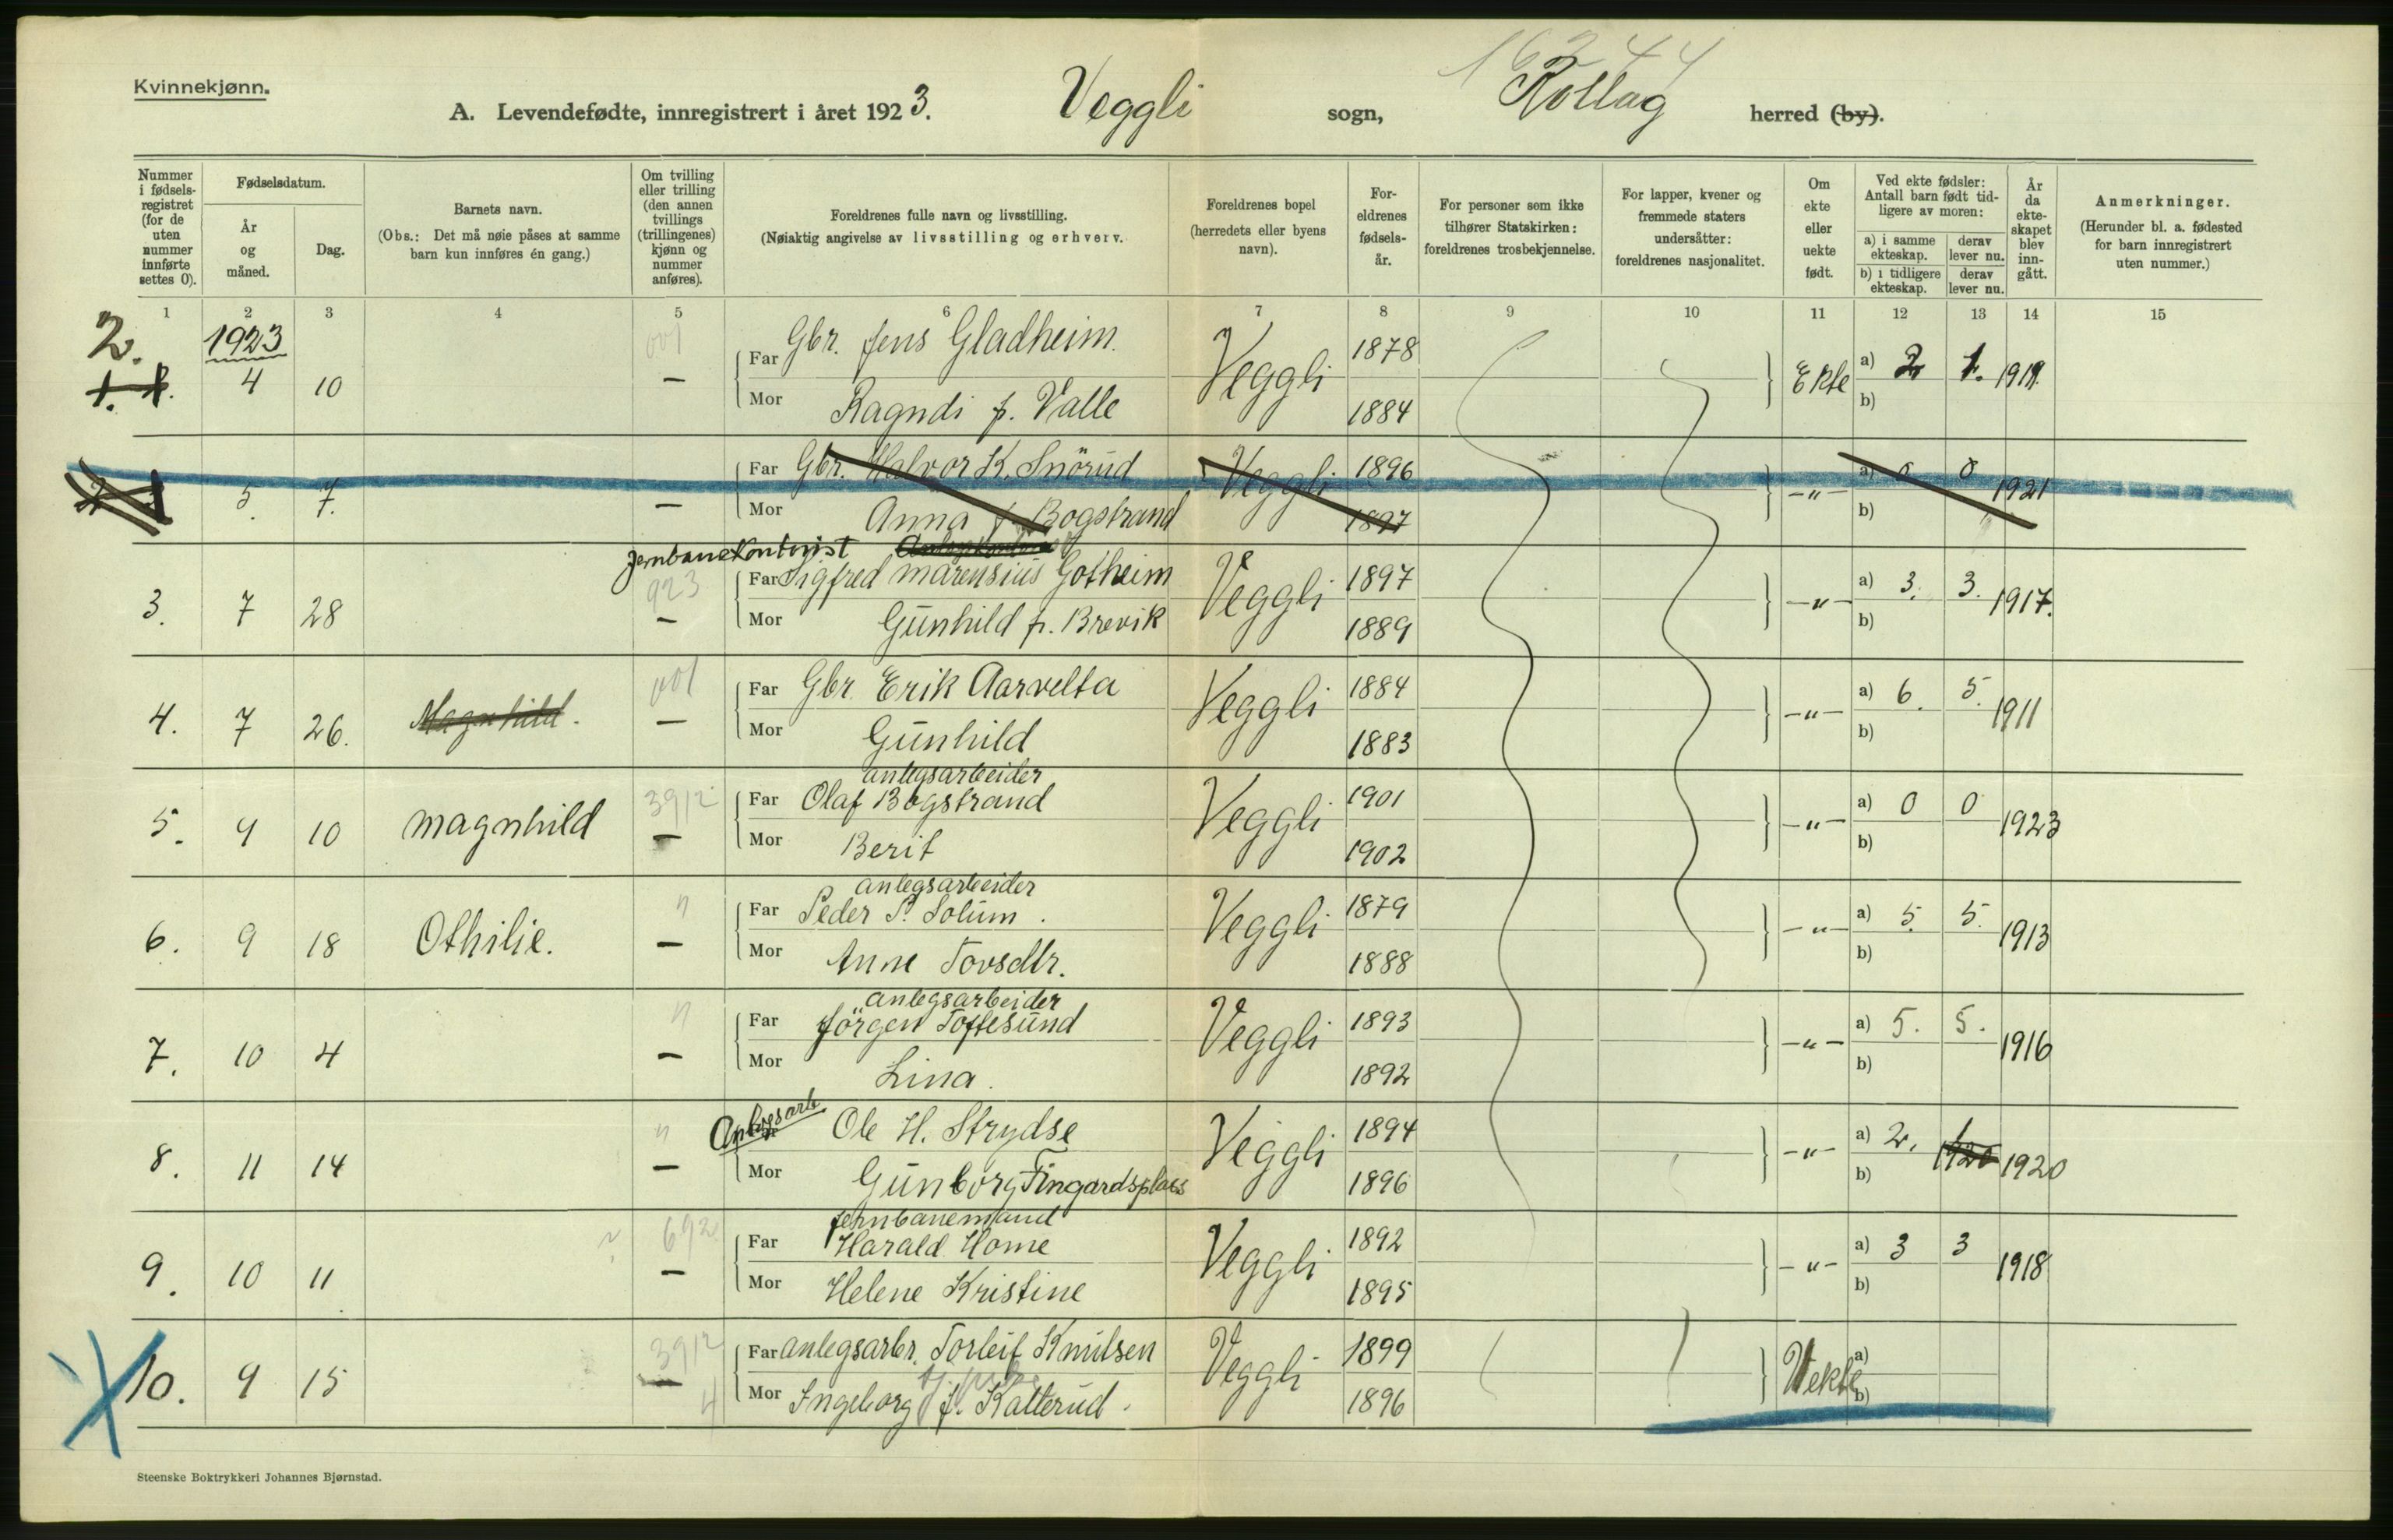 16344
Kvinnekjønn.
A. Levendefødte, innregistrert i året 1923. Veggli sogn, Rollag herred (by).
Nummer i fødselsregistret (for de uten nummer innførte settes 0).
Fødselsdatum.
År og måned.
Dag.
Barnets navn.
(Obs.: Det må nøie påses at samme barn kun innføres én gang.)
Om tvilling eller trilling (den annen tvillings (trillingenes) kjønn og nummer anføres).
Foreldrenes fulle navn og livsstilling.
(Nøiaktig angivelse av livsstilling og erhverv.
Foreldrenes bopel (herredets eller byens navn).
Foreldrenes fødselsår.
For personer som ikke tilhører Statskirken: foreldrenes trosbekjennelse.
For lapper, kvener og fremmede staters undersåtter: foreldrenes nasjonalitet.
Om ekte eller uekte født.
Ved ekte fødsler: Antall barn født tidligere av moren:
a) i samme ekteskap.
derav lever nu.
b) i tidligere ekteskap.
derav lever nu.
År da ekteskapet blev inngått.
Anmerkninger.
(Herunder bl. a. fødested for barn innregistrert uten nummer.)
1 2 3 4 5 6 7 8 9 10 11 12 13 14 15
2. 1923 001 Far Gbr. Jens Gladheim. Veggli 1878 Ekte a) 2 1. 1919.
4 10 — Mor Ragndi f. Valle 1884 b)
Far Gbr. Halvor K. Snörud Veggli 1896 —"— a) 0 0 1921
5. 7. — Mor Anna f. Bogstrand 1897 b)
Jernbanekontorist
3. 7 28 923 — Far Sigfred Marensius Gotheim Veggli 1897 —"— a) 3. 3. 1917.
Mor Gunhild f. Brevik 1889 b)
4. 7 26. Magnhild. 001 — Far Gbr. Erik Aarvelta Veggli 1884 —"— a) 6. 5. 1911
Mor Gunhild 1883 b)
anlegsarbeider
5. 9 10 Magnhild 3912 — Far Olaf Bogstrand Veggli 1901 —"— a) 0 0 1923
Mor Berit 1902 b)
anlegsarbeider
6. 9 18 Othilie. " — Far Peder P. Solum. Veggli 1879 —"— a) 5. 5. 1913
Mor Anne Tovsdtr. 1888 b)
anlegsarbeider
7. 10 4 " — Far Jörgen Toftesund Veggli 1893 —"— a) 5. 5. 1916
Mor Lina. 1892 b)
8. 11 14 " — Anlegsarb Ole H. Strydse Veggli 1894 —"— a) 2. 1 1920 1920
Mor Gunborg Fingardsplass 1896 b)
Jernbanemand
9. 10 11 692 — Far Harald Home Veggli 1892 —"— a) 3 3 1918
Mor Helene Kristine 1895 b)
10. 9 15 3912 — Far anlegsarbr. Torleif Knutsen Veggli 1899 Uekte a)
4 Mor Ingeborg f. Katterud. 1896 b)
Steenske Boktrykkeri Johannes Bjørnstad.